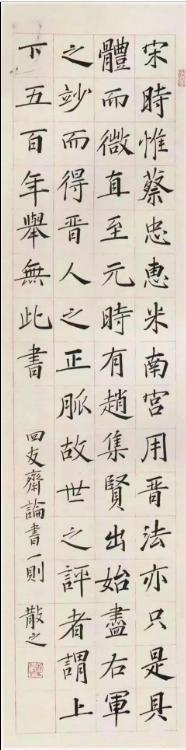 宋時惟蔡忠惠米南宮用晉法亦只是具
體而微直至元時有趙集賢出始盡右軍
之竗而得晉人之正脈故世之評者謂上
下五百年舉無此書
四友齋論書一則 散之